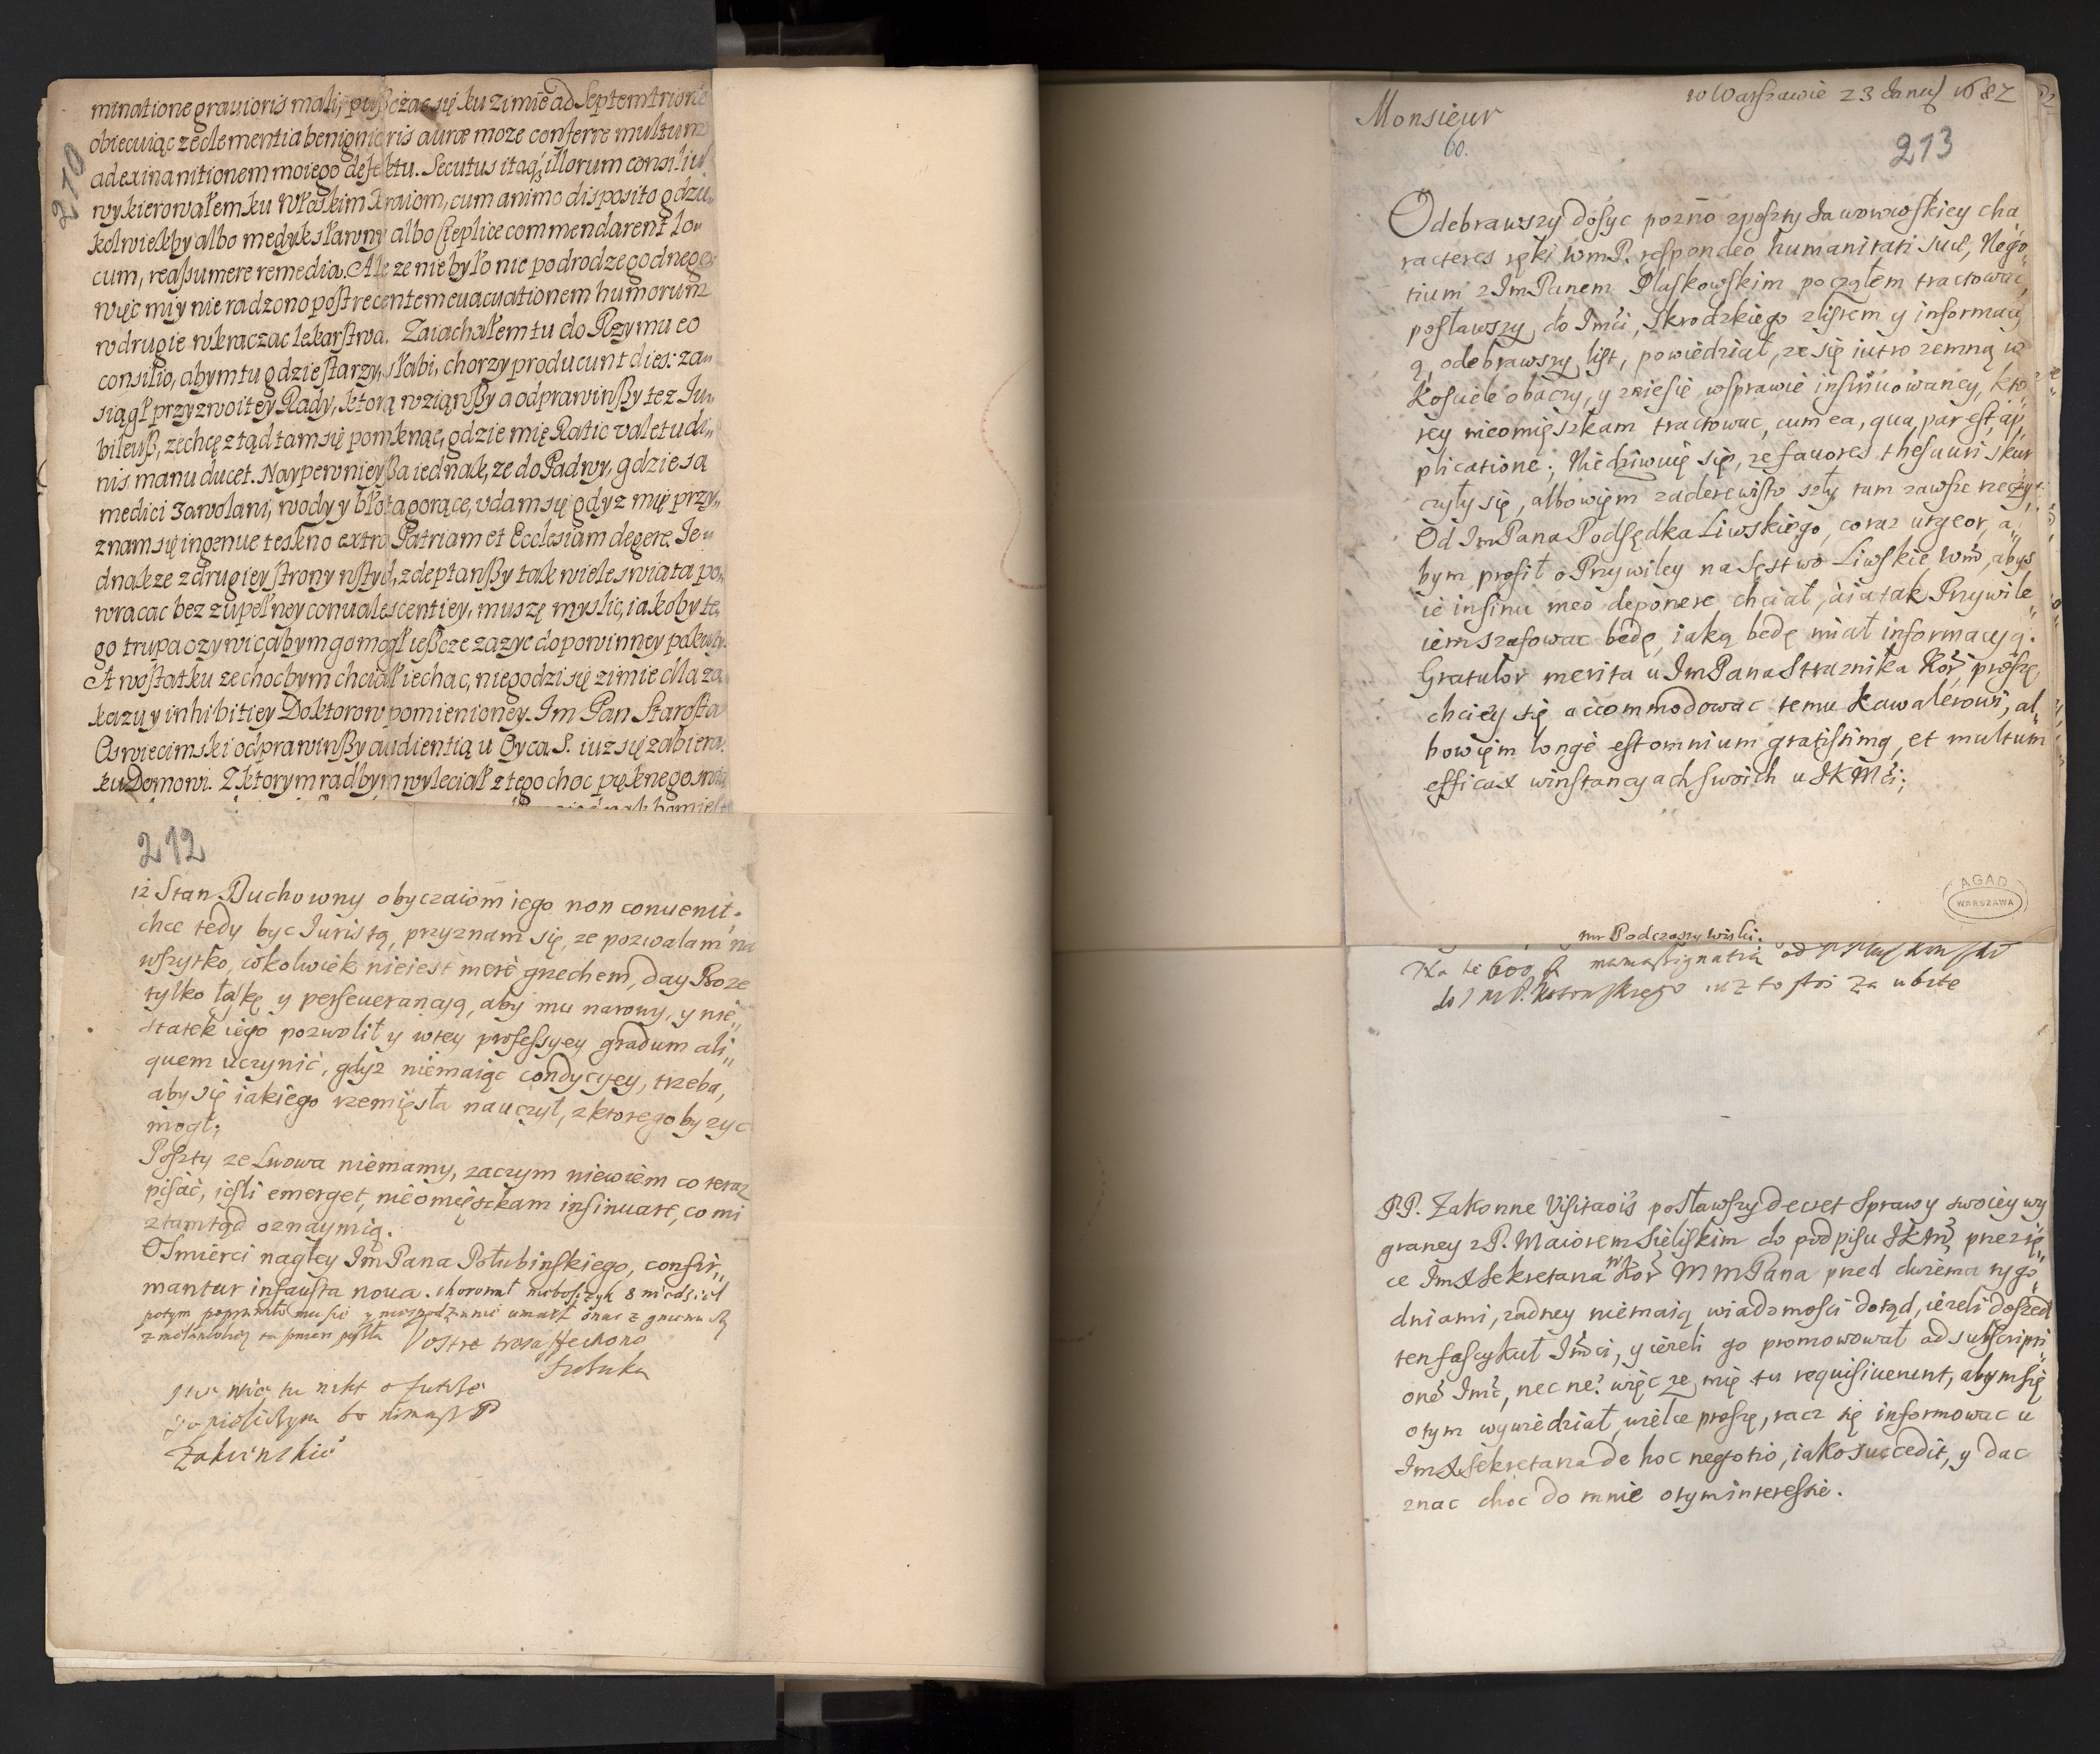 210
minatione gravioris mali, pußczac się ku zimie ad Septemtrione
obiecuiąc ze clementia benignioris auræ moze conferre multum
ad exinanitionem moiego defektu. Secutus itaq, illorum consiliu
wykierowałem ku Włoskim Kraiom, cum animo disposito gdzie„
kolwiekby albo medyk sławny albo cieplice commendarent lo„
cum, reaßumere remedia. Ale ze nie było nic po drodze godnego
więc mi y nie radzono post recentem euacuationem humorum
w drugie wkraczac lekarstwa. Zaiachałem tu do Rzymu eo
consilio, abym tu gdzie starzy, słabi, chorzy producunt dies: za„
siągł przyzwoitey Rady, ktorą wziąnßy a odprawinßy tez Iu„
bileuß, zechcę ztąd tam się pomknąc, gdzie mię Ratio valetudi„
nis manu ducet. Naypewnieyßa iednak, ze do Padwy, gdzie są
medici zawolani, wody y błota gorące, vdam się gdyz mię przy„
znam się ingenue teskno extra Patriam et Ecclesiam degere. Ie„
dnakze z drugiey strony wstyd, zdeptanßy tak wiele swiata po„
wracac bez zupełney conualescentiey, muszę myslic, iakoby te„
go trupa ozywic, abym go mogł ießcze zazyc do powinney
A w ostatku ze chocbym chciał iechac, niegodzi się zimie dla za„
kazu y inhibitiey Doktorow pomienioney. Im Pan Starosta
Oswiecimski odprawinßy audientią u Oyca S. iuz się zabiera
ku Domowi. Z ktorym radbym wyleciał z tego choc pęknego
212
iż Stan Duchowny obyczaiom iego non conuenit,
chce tedy byc Iuristą, przyznam się, ze pozwalam na
wszytko, cokolwiek nieiest merè grzechem, day Boze
tylko łaskę y perseuerancyą, aby mu narowy, y nie„
statek iego pozwolił y wtey professyey gradum ali„
quem uczynić, gdyz niemaiąc condycyey, trzeba,
aby się iakiego rzemięsła nauczył, z ktorego by zyc
mogł;
Poszty ze Lwowa niemamy, zaczym niewiem co teraz
pisać, iesli emerget, nieomięszkam insinuare, co mi
ztamtąd oznaymią.
O Smierci nagłey Im Pana Połubinskiego, confir„
mantur infausta noua. chorował nieboszczyk 8 niedziel
potym poprawiło mu się y niespodzianie umarł
Vostre
Monsieur
w Warszawie 23 Ianuy 1682
60.
213
Odebrawszy dosyc pozno z poszty Iaworowskiey cha„
racteres ręki WmP. respondeo humanitati suæ, Nego„
tium z Im Panem Plaskowskim począłem tractowac,
posławszy do Imci, Skrodzkiego z listem y informacy
ą, odebrawszy list, powiedział, ze się iutro zemną w
Kosciele obaczy, y zniesie w sprawie insinuowaney, kto„
rey nieomięszkam tractowac, cum ea, qua par est, ap„
plicatione; Niedziwuię się, ze fauores thesauri skur
czyły się, albowięm zaderewisto szły tam zawsze rzeczy.
Od Im Pana Podsędka Liwskiego, coraz urgeor, a„
bym prosił o Przywiley na Sęstwo Liwskie, Wm, abys
ie in sinu meo deponere chciał, a ia tak Przywile„
iem szafowac bedę, iaką bedę miał informacyą.
Gratulor merita u Im Pana Straznika Kor, proszę
chciey się accommodowac temu Kawalerowi, al„
bowięm longè est omnium gratissimą, et multum
efficax w instancyach swoich u JKMci;
AGAD
WARSZAWA
Podczaszy Wiski.
Na te 600
do I M P. iuz to za
PP. Zakonne Visitaois posławszy decret Sprawy swoiey wy
graney z P. Maiorem Sieliskim do podpisu JKM, przez rę„
ce ImX Sekretarza Wo Kor MMPana przed dwiema tygo„
dniami, zadney niemaią wiadomosci dotąd, iezeli doszedł
ten fascykuł Imci, y iezeli go promowował ad subscripti„
onem Imc, nec ne? więc ze mię tu requisiuerunt, abym się
o tym wywiedział, wielce proszę, racz się informowac u
ImX Sekretarza de hoc negotio, iako succedit, y dac
znac choc do mnie o tym interessie.